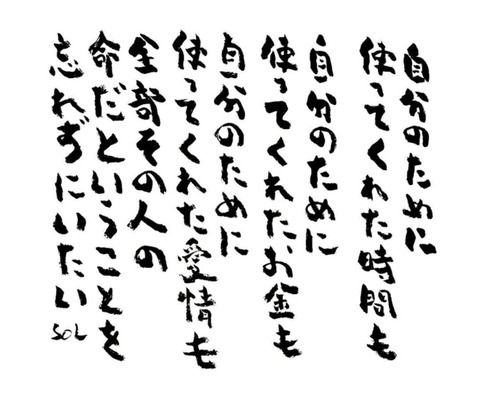 自分のために
使ってくれた時間も
自分のために
使ってくれた、お金も
自分のために
使ってくれた愛情も
全部その人の
命だということを
忘れずにいたい
SOL